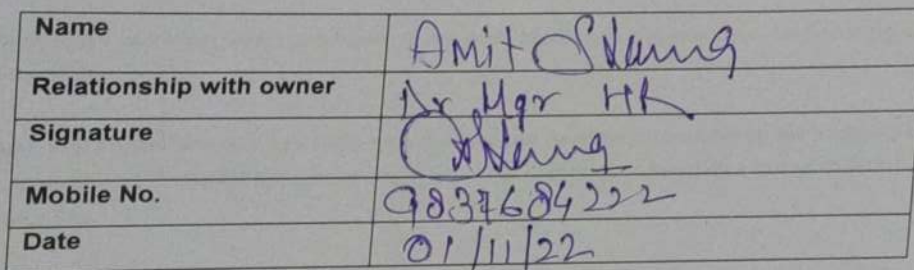 Name Amit Sharma
Relationship with owner Dr Mgr HR
Signature
Mobile No. 9837684222
Date 01/11/22